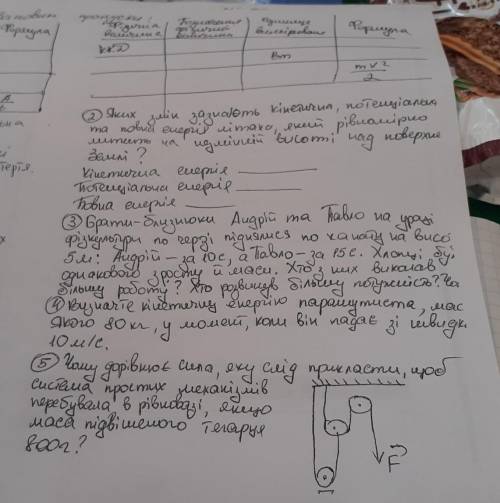 Формула
Фізична величина
Позначення фізичної величини
Одиниця вимірювання
Формула
ККД
Вт
mv²
2
② Яких змін зазнають кінетична, потенціальна
та повна енергія літака, який рівномірно
летить на незмінній висоті над поверхне
Землі?
Кінетична енергія
Потенціальна енергія
Повна енергія
③ Брати-близнюки Андрій та Павло на уроці
фізкультури по черзі піднялися по канату на висо
5м: Андрій – за 10с, а Павло – за 15с. Хлопці
однакового зросту й маси. Хто з них виконав
більшу роботу? Хто розвинув більшу потужність?
④ Визначте кінетичну енергію парашутиста, мас
якого 80 кг, у момент, коли він падає зі швидк
10 м/с.
⑤ Чому дорівнює сила, яку слід прикласти, щоб
система простих механізмів
перебувала в рівновазі, якщо
маса підвішеного тягарця
800г?
F